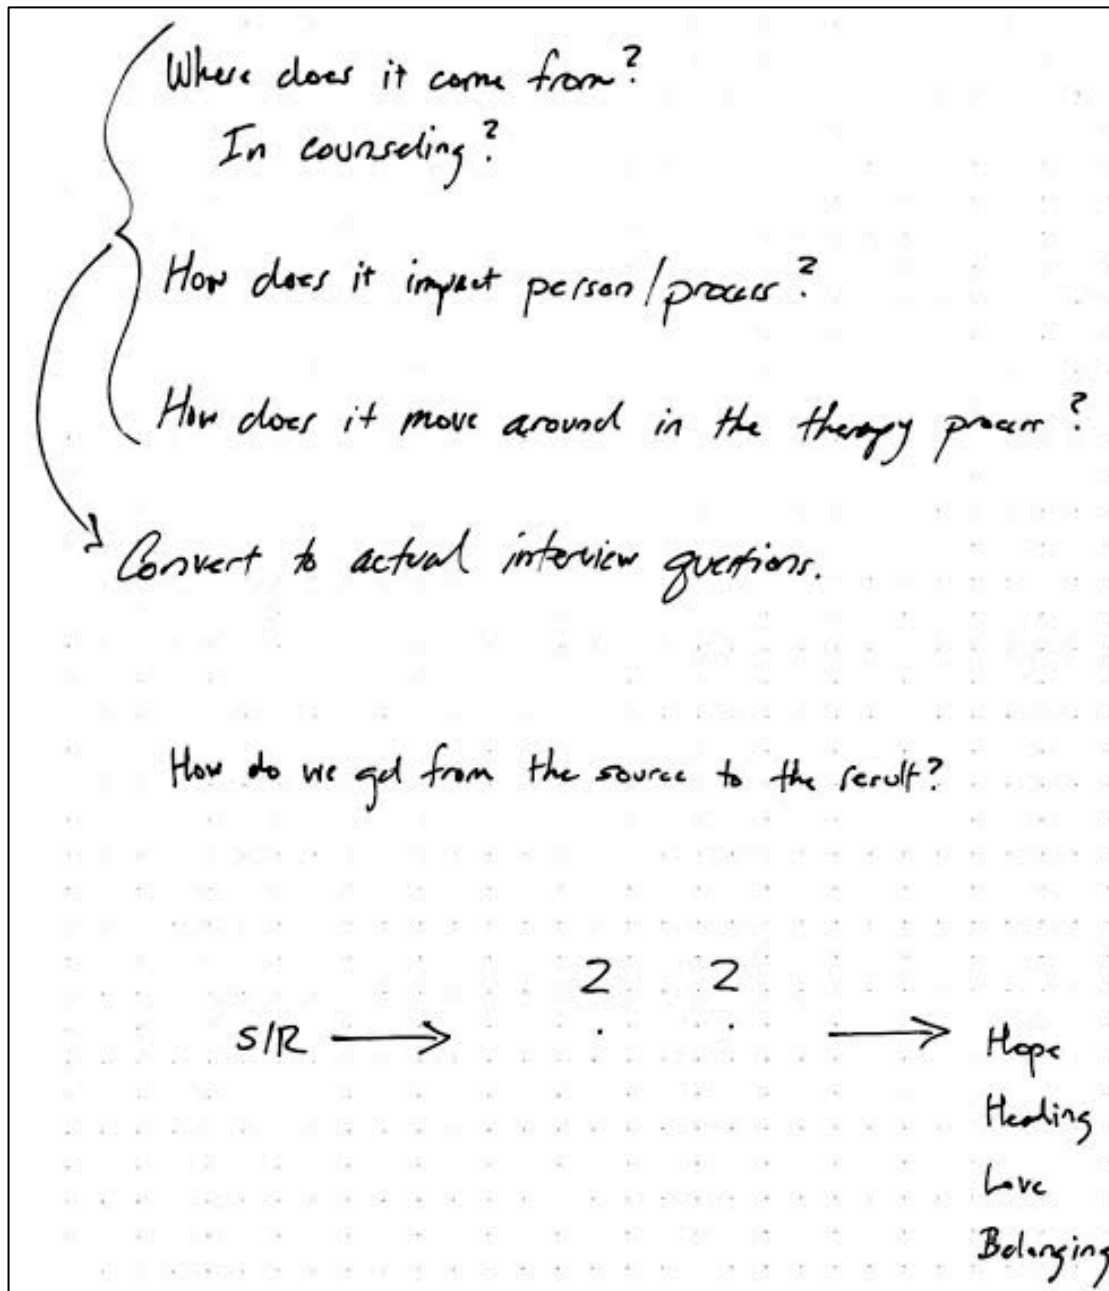 Where does it come from?
In counseling?
How does it impact person/process?
How does it move around in the therapy process?
Convert to actual interview questions.
How do we get from the source to the result?
? ?
S/R → . . → Hope
Healing
Love
Belonging